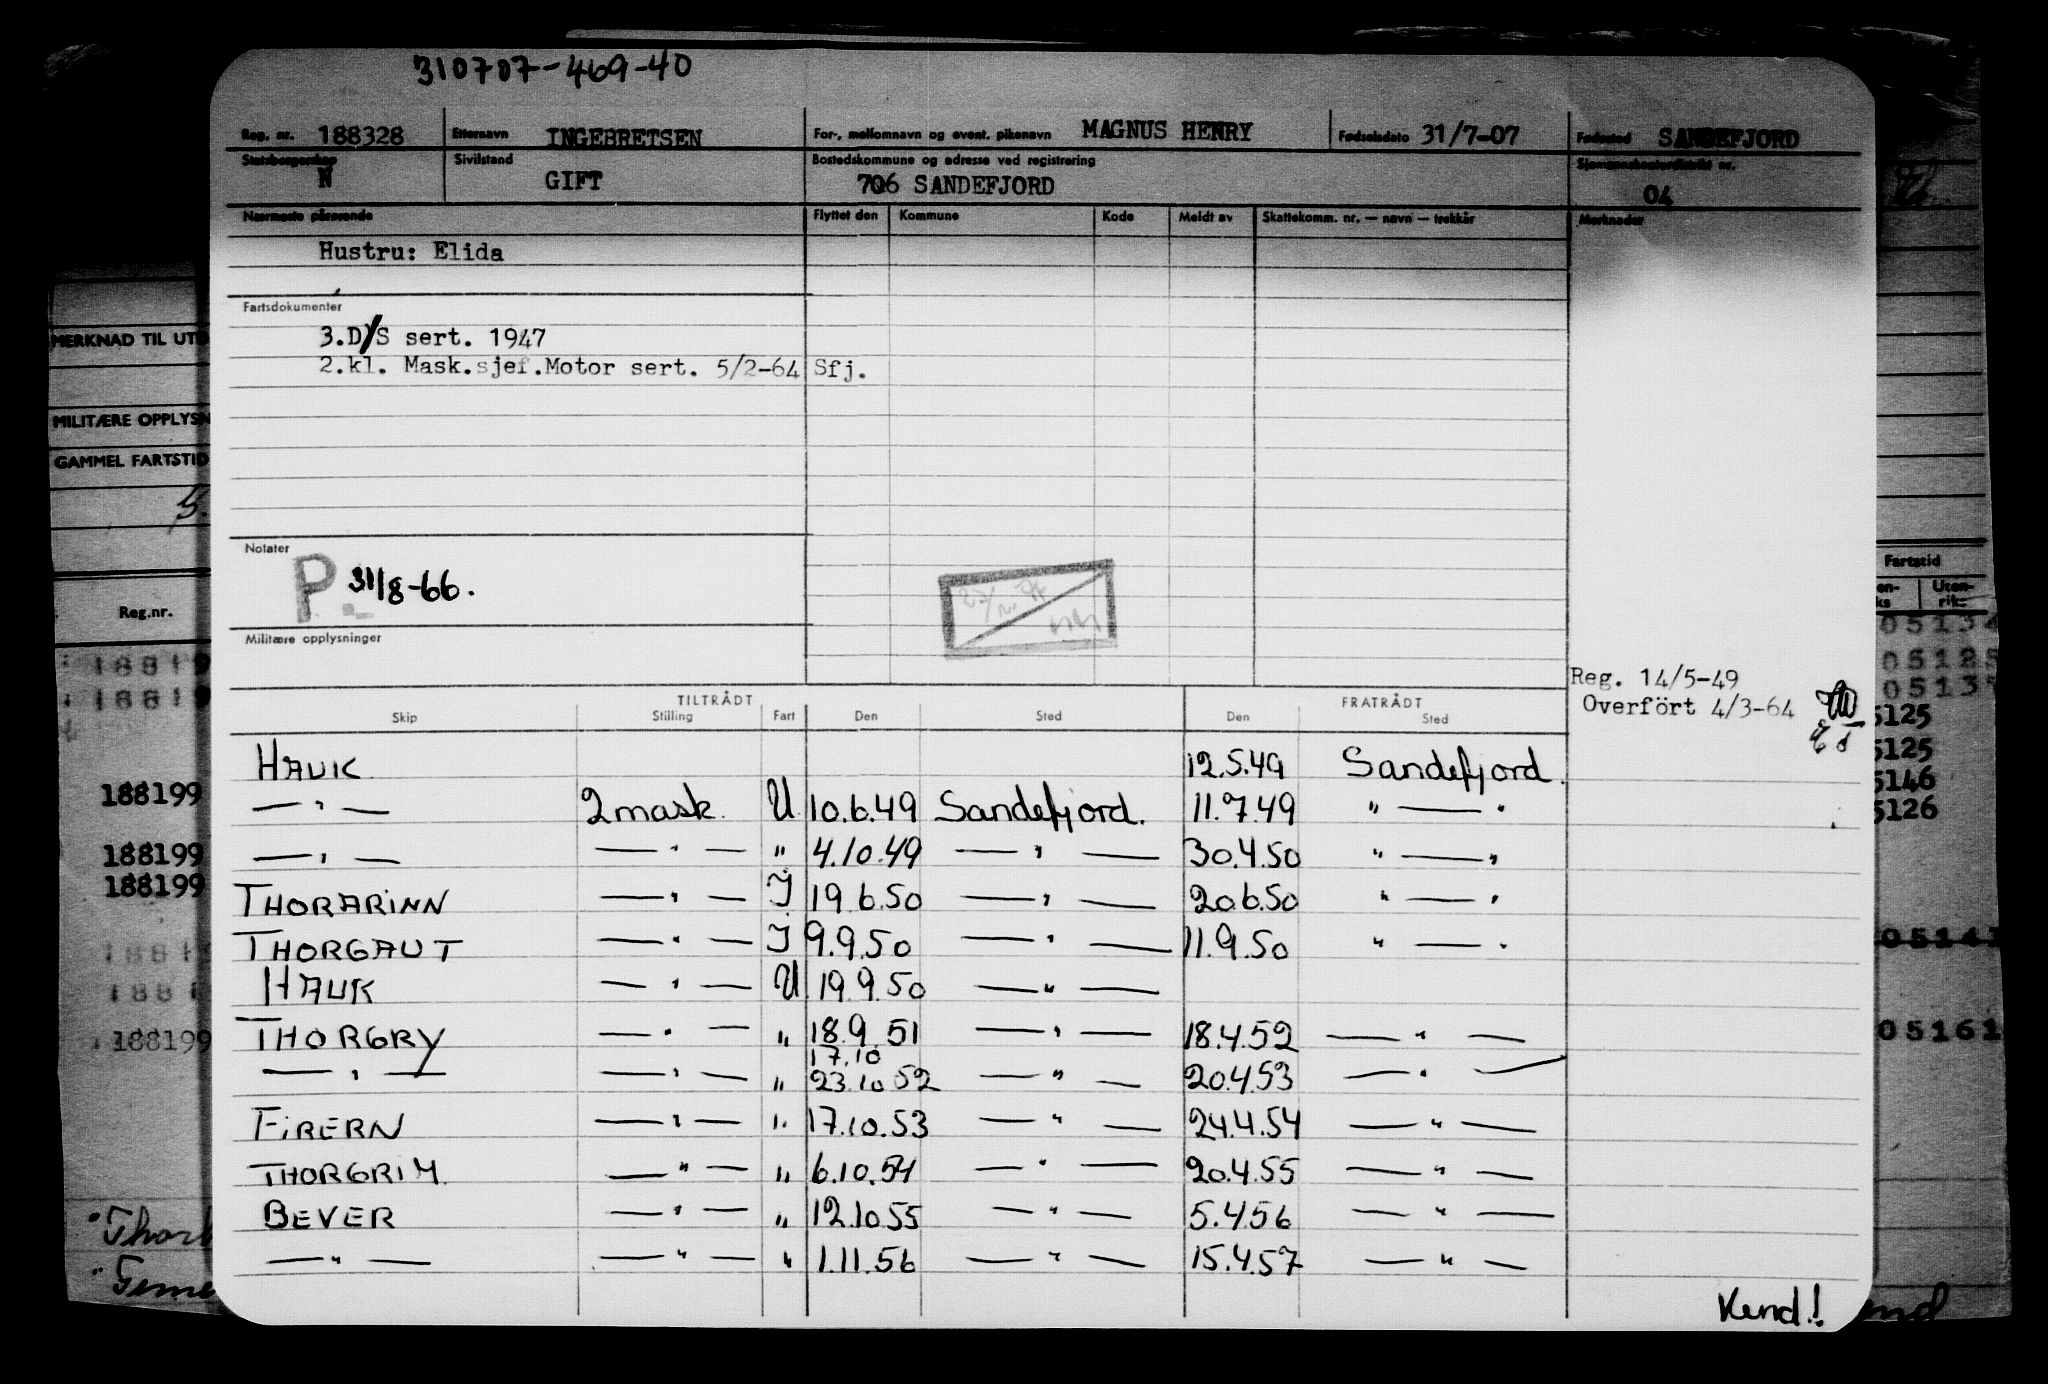 310707-469-40
Reg. nr. 188328 Etternavn INGEBRETSEN For-, mellomnavn og event. pikenavn MAGNUS HENRY Fødselsdato 31/7-07 Fødested SANDEFJORD
Statsborgerskap N Sivilstand GIFT Bostedskommune og adresse ved registrering 706 SANDEFJORD 04
Nærmeste pårørende Flyttet den Kommune Kode Meldt av Skattekomm. nr. — navn — trekkår Merknader
Hustru: Elida
Fartsdokumenter
3.D/S sert. 1947
MERKNAD TIL
2.kl. Mask.sjef.Motor sert. 5/2-64 Sfj.
MILITÆRE OPPLYSN
GAMMEL FARTSTID
Notater
P. 31/8-66.
Fartstid
Reg.nr.
Militære opplysninger
Reg. 14/5-49
Overfört 4/3-64
TILTRÅDT FRATRÅDT
Skip Stilling Fart Den Sted Den Sted
HAUK 12.5.49 Sandefjord.
— " — 2 mask. U 10.6.49 Sandefjord. 11.7.49 " — "
— " — — " — " 4.10.49 — " — 30.4.50 " — "
THORARINN — " — I 19.6.50 — " — 20.6.50 " — "
THORGAUT — " — I 9.9.50 — " — 11.9.50 " — "
HAUK — " — U 19.9.50 — " —
THORGRY — " — " 18.9.51 — " — 18.4.52 — " —
17.10
— " — — " — " 23.10.52 — " — 20.4.53 — " —
FIRERN — " — " 17.10.53 — " — 24.4.54 — " —
THORGRIM — " — " 6.10.54 — " — 20.4.55 — " —
BEVER — " — " 12.10.55 — " — 5.4.56 — " —
— " — — " — " 1.11.56 — " — 15.4.57 — " —
Vend!
188199
188199
188199
188199
5125
5125
5146
5126
05161